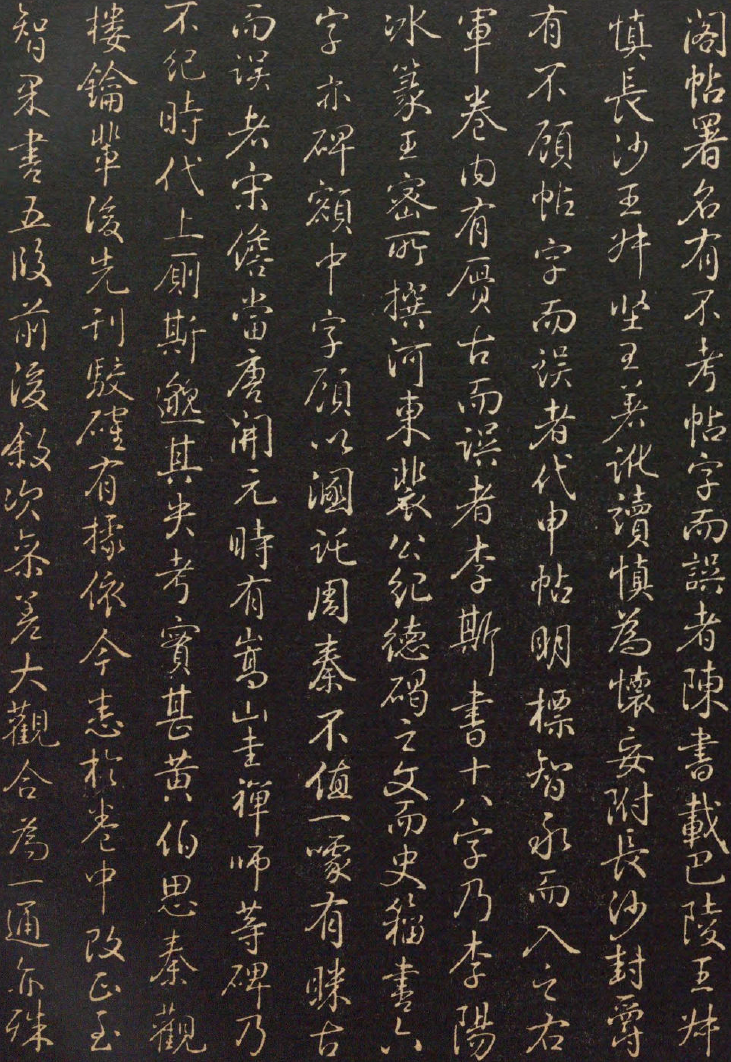 阁帖署名有不考帖字而誤者陳書載巴陵王叔
慎長沙王叔坚王著訛讀慎為懷妄附長沙封爵
有不顧帖字而误者代申帖明標智永而入之右
軍卷内有贋古而誤者李斯書十八字乃李陽
冰篆王密所撰河東裴公纪德碣之文而史籀書六
字亦碑額中字顧以溷託周秦不值一噱有昧古
而误者宋儋當唐開元時有嵩山圭禪师等碑乃
不纪時代上厠斯邈其失考實甚黄伯思秦觀
樓鑰輩後先刊駮確有據依今悉於卷中改正至
智果書五段前後敘次参差大觀合為一通亦殊